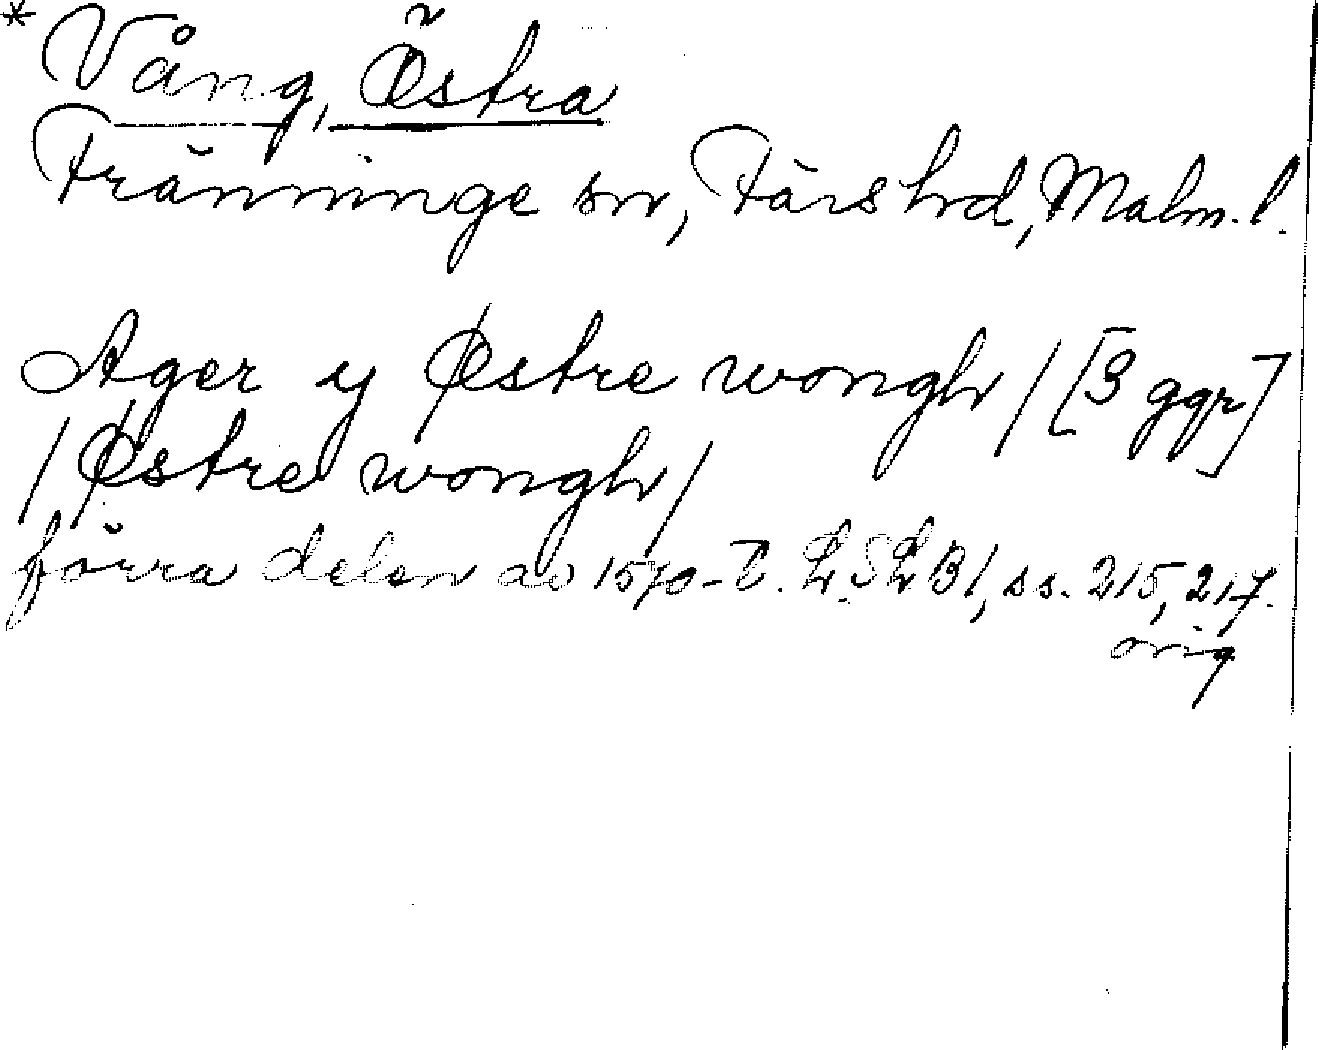 *Vång, Östra
Tränninge sn, Färs hd, Malm. l.
Ager y Østre wongh / [3 ggr]
/ Østre wongh /
förra delen av 1570-t. LSLB1, ss. 215, 217.
orig